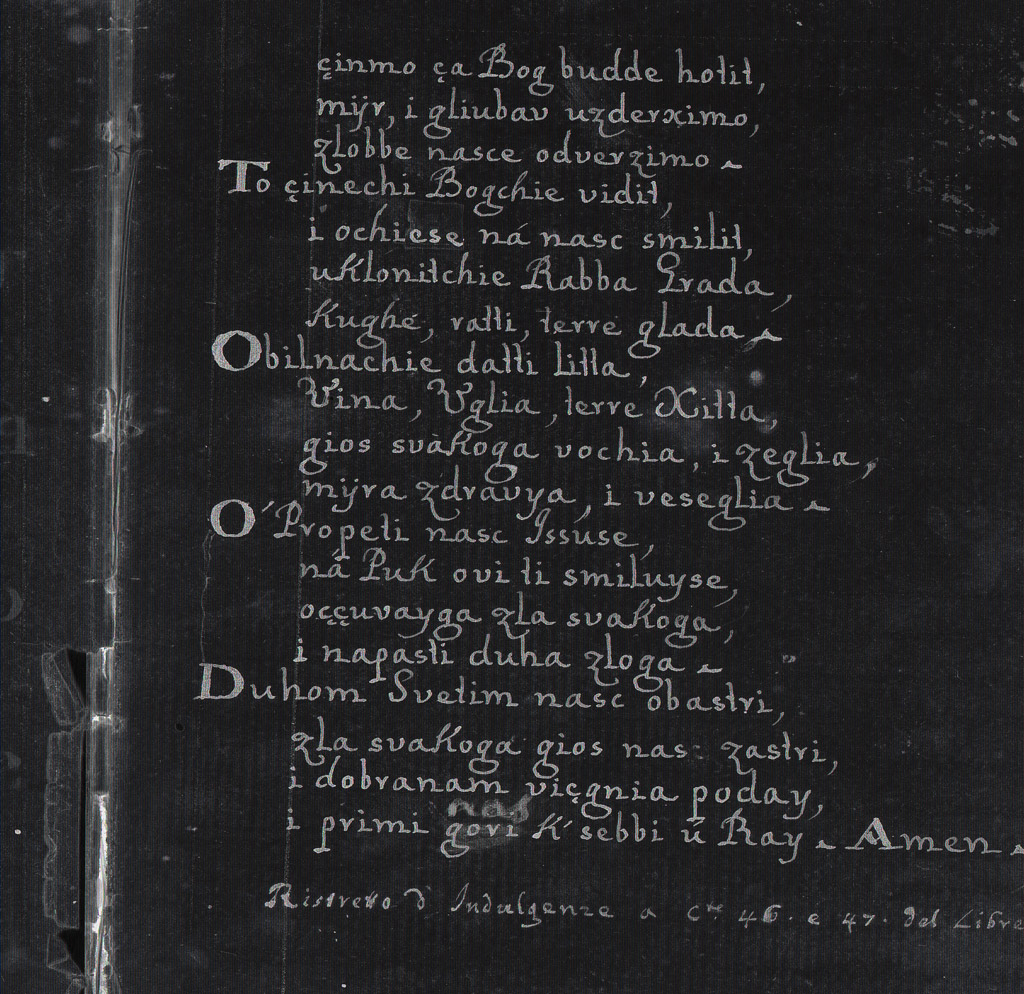 çinmo ça Bog budde hotit,
mÿr, i gliubav uzderximo,
zlobbe nasce odverzimo ~
To çinechi Bogchie vidit,
i ochiese ná nasc smilit,
uklonitchie Rabba Grada,
Kughé, ratti, terre glada ~
Obilnachie datti litta,
Vina, Uglia, terre Xitta,
gios svàkoga vochia, i zeglia,
mÿra zdravya, i veseglia ~
O' Propeti nasc Issúse,
ná Puk ovi ti smiluyse,
oççuvayga zla svakoga,
i napasti duha zloga ~
Duhom Svetim nasc obastri,
zla svakoga gios nas zastri,
i dobranam viçgnia poday,
nas
i primi gori k' sebbi ú Ray ~ Amen ~
Ristretto d' Indulgenze a Cte 46. e 47. del Libre